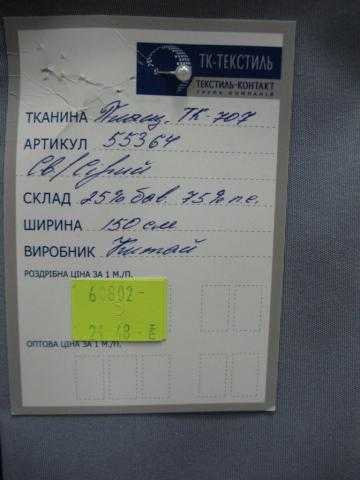 ТК-ТЕКСТИЛЬ
ТЕКСТИЛЬ-КОНТАКТ
ГРУПА КОМПАНІЙ
ТКАНИНА Плащ. ТК-707
АРТИКУЛ 55364
Св/Серий
СКЛАД 25% бав. 75% п.е.
ШИРИНА 150 см
ВИРОБНИК Китай
РОЗДРІБНА ЦІНА ЗА 1 М./П.
ОПТОВА ЦІНА ЗА 1 М./П.